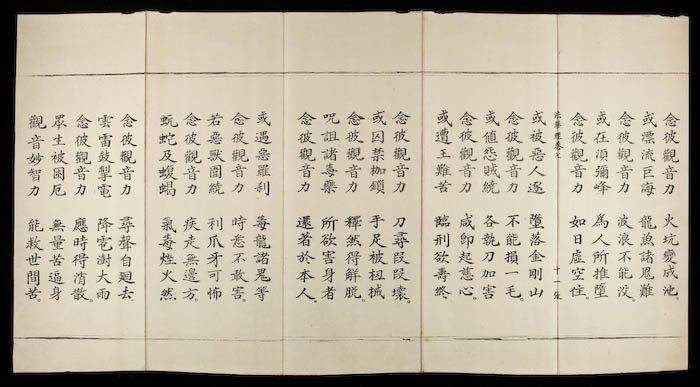 念彼觀音力　火坑變成池。
或漂流巨海　龍魚諸鬼難
念彼觀音力　波浪不能沒。
或在須彌峰　為人所推墮
念彼觀音力　如日虛空住。
法華經卷七　十一张
或被惡人逐　墮落金剛山
念彼觀音力　不能損一毛。
或值怨賊繞　各執刀加害
念彼觀音力　咸即起慈心。
或遭王難苦　臨刑欲壽終
念彼觀音力　刀尋段段壞。
或囚禁枷鎖　手足被杻械
念彼觀音力　釋然得解脫。
呪詛諸毒藥　所欲害身者
念彼觀音力　還著於本人。
或遇惡羅刹　毒龍諸鬼等
念彼觀音力　時悉不敢害。
若惡獸圍繞　利爪牙可怖
念彼觀音力　疾走無邊方。
蚖蛇及蝮蝎　氣毒煙火然
念彼觀音力　尋聲自迴去
雲雷鼓掣電　降雹澍大雨
念彼觀音力　應時得消散。
眾生被困厄　無量苦逼身
觀音妙智力　能救世間苦。